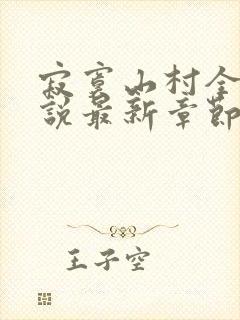 寂寞山村全
說最新章節
王子空